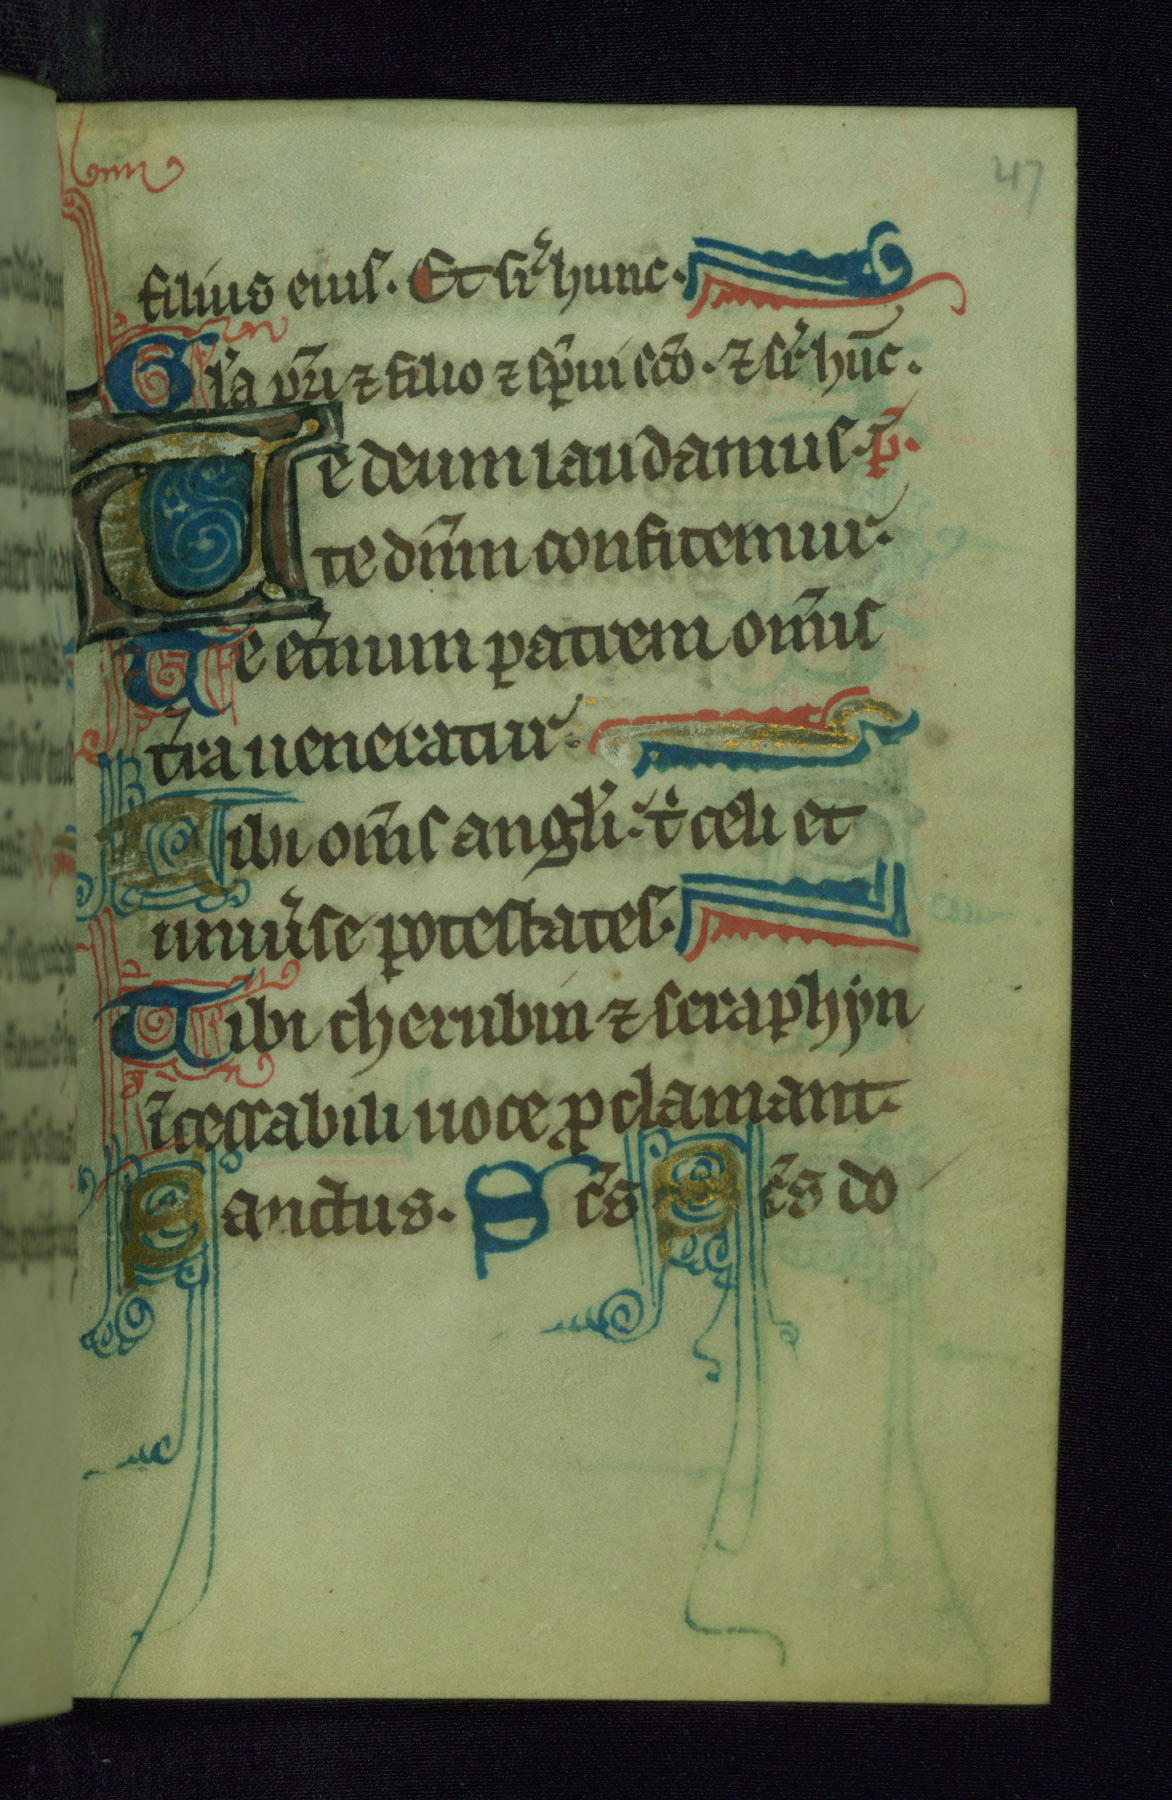 47
filius eius. Et sup̄ hunc.
Gl̄a pr̄i ⁊ filio ⁊ sp̄ui sc̄o. ⁊ hūc.
Te deum laudamus. p̄s.
te dn̄m confitemur.
Te et̄num patrem om̄is
t̄ra ueneratur.
Tibi om̄is angl̄i. t̄ celi et
uniūse potestates.
Tibi cherubin ⁊ seraphyn
īcessabili uoce proclamant.
Sanctus. Sc̄s Sc̄s do